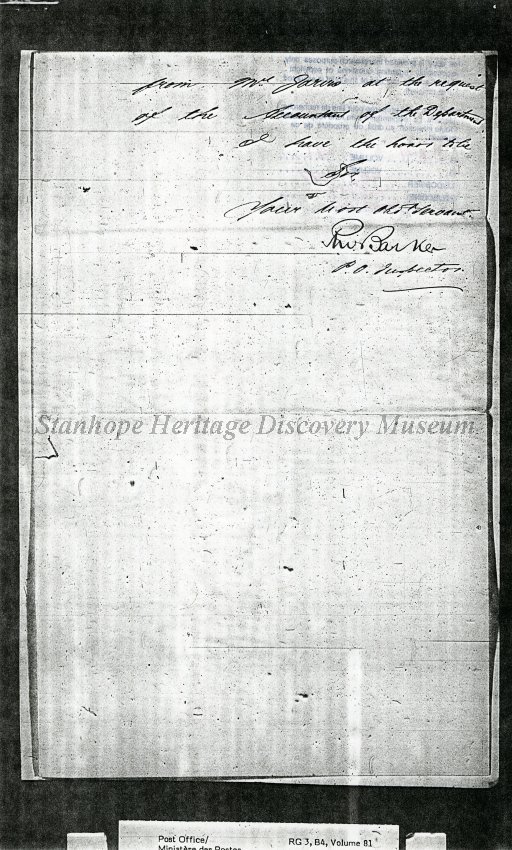 from Mr Jarvis at the request
of the Accountant of the Department.
I have the honor to be
Sir
Your most obdt Servant
P.O. Inspector.
Stanhope Heritage Discovery Museum
Post Office/
Ministère des Postes
RG 3, B4, Volume 81